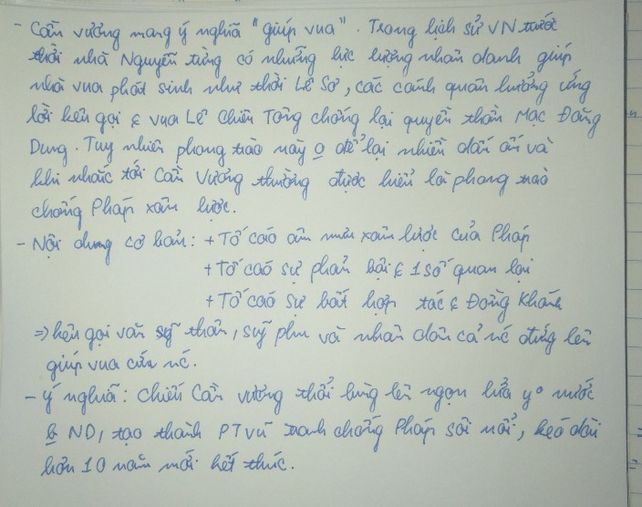 - Cần vương mang ý nghĩa "giúp vua". Trong lịch sử VN trước
thời nhà Nguyễn từng có những lực lượng nhân danh giúp
nhà vua phát sinh như thời Lê Sơ, các cánh quân hưởng ứng
lời kêu gọi € vua Lê Chiêu Tông chống lại quyền thần Mạc Đăng
Dung. Tuy nhiên phong trào này o để lại nhiều dấu ấn và
khi nhắc tới Cần Vương thường được hiểu là phong trào
chống Pháp xâm lược.
- Nội dung cơ bản: + Tố cáo âm mưu xâm lược của Pháp
+ Tố cáo sự phản bội € 1 số quan lại
+ Tố cáo sự bất hợp tác € Đồng Khánh
=> kêu gọi văn thân, sỹ phu và nhân dân cả nc đứng lên
giúp vua cứu nc.
- ý nghĩa: chiếu Cần vương thổi bùng lên ngọn lửa y° nước
ND, tạo thành PT vũ trang chống Pháp sôi nổi, kéo dài
hơn 10 năm mới kết thúc.